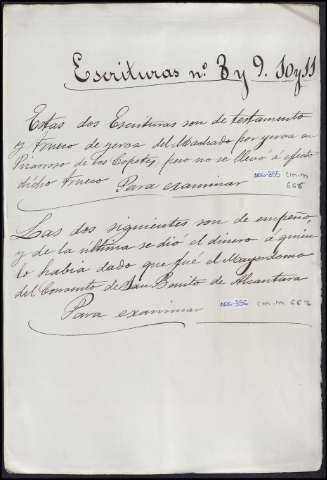 Escrituras nº 8 y 9. 10 y 11
Estas dos Escrituras son de testamento
y trueco de yerva del Machado por yerva en
de los Capotes, pero no se llevó a efecto
dicho trueco. Para examinar 006-355 C.M.M
668
Las dos siguientes son de empeño,
y de la última se dió el dinero a quien
lo había dado que fué el Mayordomo
del Convento de San Benito de Alcantara
Para examinar 006-356 C.M.M 667